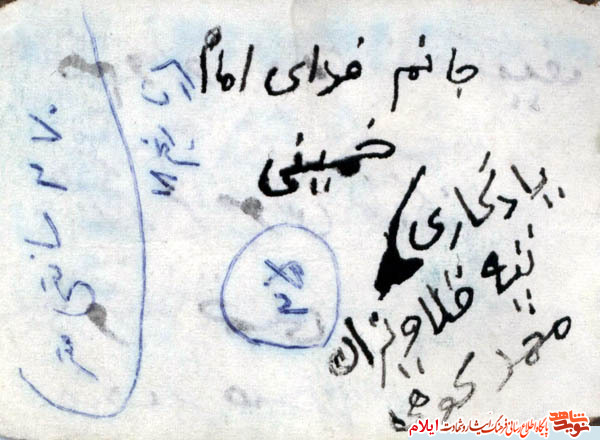 جانم فدای امام
خمینی
یادگاری
تپه قلاویزان
محمد
سانتی متر
نوید شاهد
پایگاه اطلاع رسانی فرهنگ ایثار و شهادت ایلام